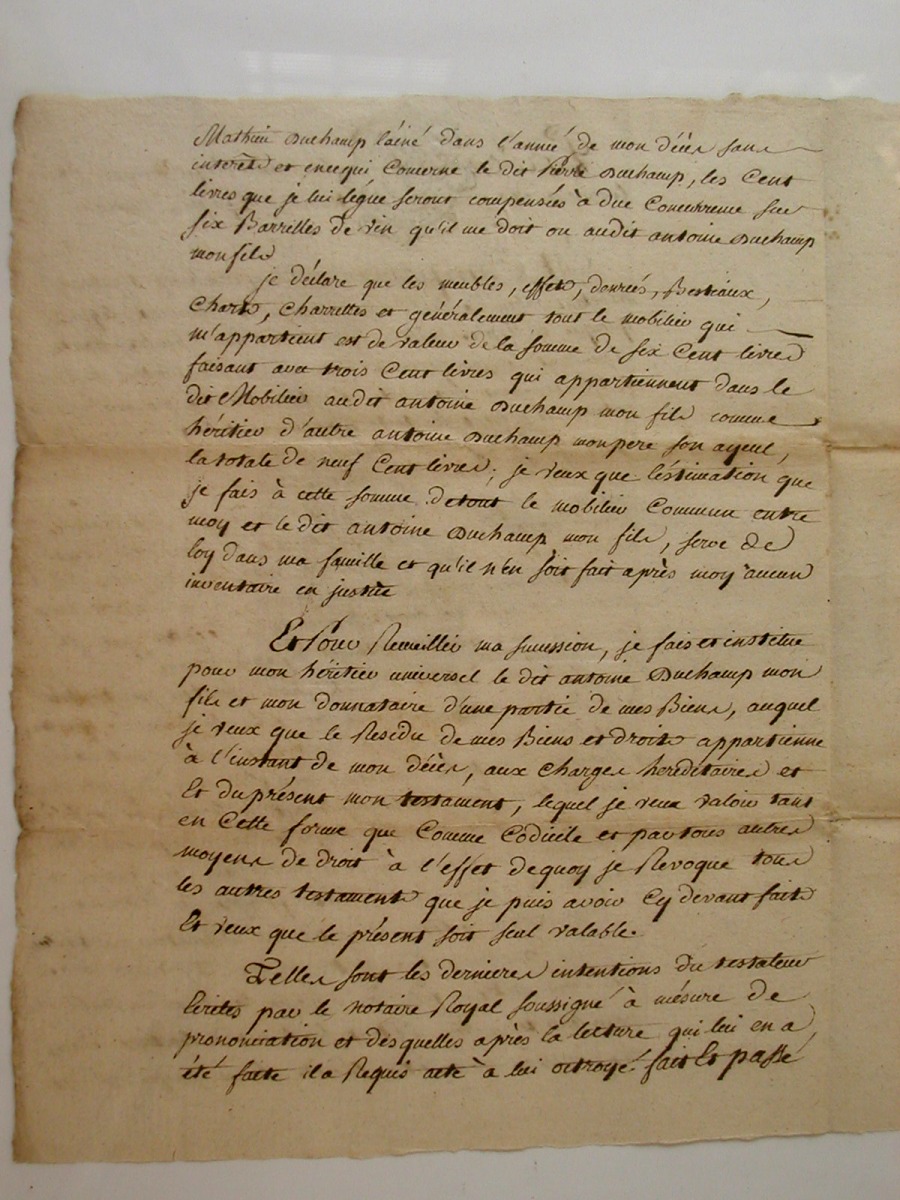 Mathieu Duchamp l'ainé dans l'année de mon décès sans
interèts et encequi Concerne le dit Pierre Duchamp, les Cent
livres que je lui légue seront compensées à due Concurrence sur
six Barrelles de vin qu'il me doit ou audit antoine Duchamp
mon fils
je déclare que les meubles, effets, denrées, Bestiaux,
Chars, Charrettes et généralement tout le mobilier qui
m'appartient est de valeur de la somme de six Cent livres
faisant avec trois Cent livres qui appartiennent dans le
dit Mobilier audit antoine Duchamp mon fils comme
héritier d'autre antoine Duchamp mon pere son ayeul,
la totale de neuf Cent livres; je veux que l'éstimation que
je fais à cette somme de tout le mobilier Commun entre
moy et le dit antoine Duchamp mon fils, serve de
loy dans ma famille et qu'il n'en soit fait après moy aucun
inventaire en justice
Et Pour Recueillir ma succession, je fais et institue
pour mon héritier universel le dit antoine Duchamp mon
fils et mon donnataire d'une partie de mes Biens, auquel
je veux que le Residu de mes Biens et droits appartienne
à l'instant de mon décès, aux charges hereditaires et
Et du présent mon testament, lequel je veux valoir tant
en Cette forme que Comme Codicile et par tous autres
moyens de droit à l'effet dequoy je Revoque tous
les autres testaments que je puis avoir Cy devant faits
Et veux que le présent soit seul valable.
Telles sont les dernieres intentions du testateur
Ecrites par le notaire Royal soussigné à mésure de
prononciation et desquelles après la lecture qui lui en a
été faite il a Requis acte à lui octroyé. fait Et passé